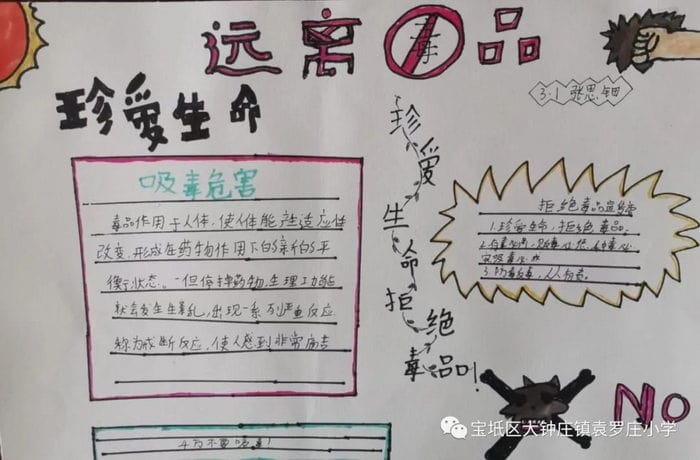 远离毒品
珍爱生命
3.1 张思钿
吸毒危害
毒品作用于人体，使人体能产生适应性
改变，形成在药物作用下的新的平
衡状态。一但停掉药物，生理功能
就会发生紊乱，出现一系列严重反应
称为戒断反应，使人感到非常痛苦
珍爱生命拒绝毒品!!
拒绝毒品
1.珍爱生命，拒绝毒品。
3.防毒反毒，人人有责。
NO
宝坻区大钟庄镇袁罗庄小学